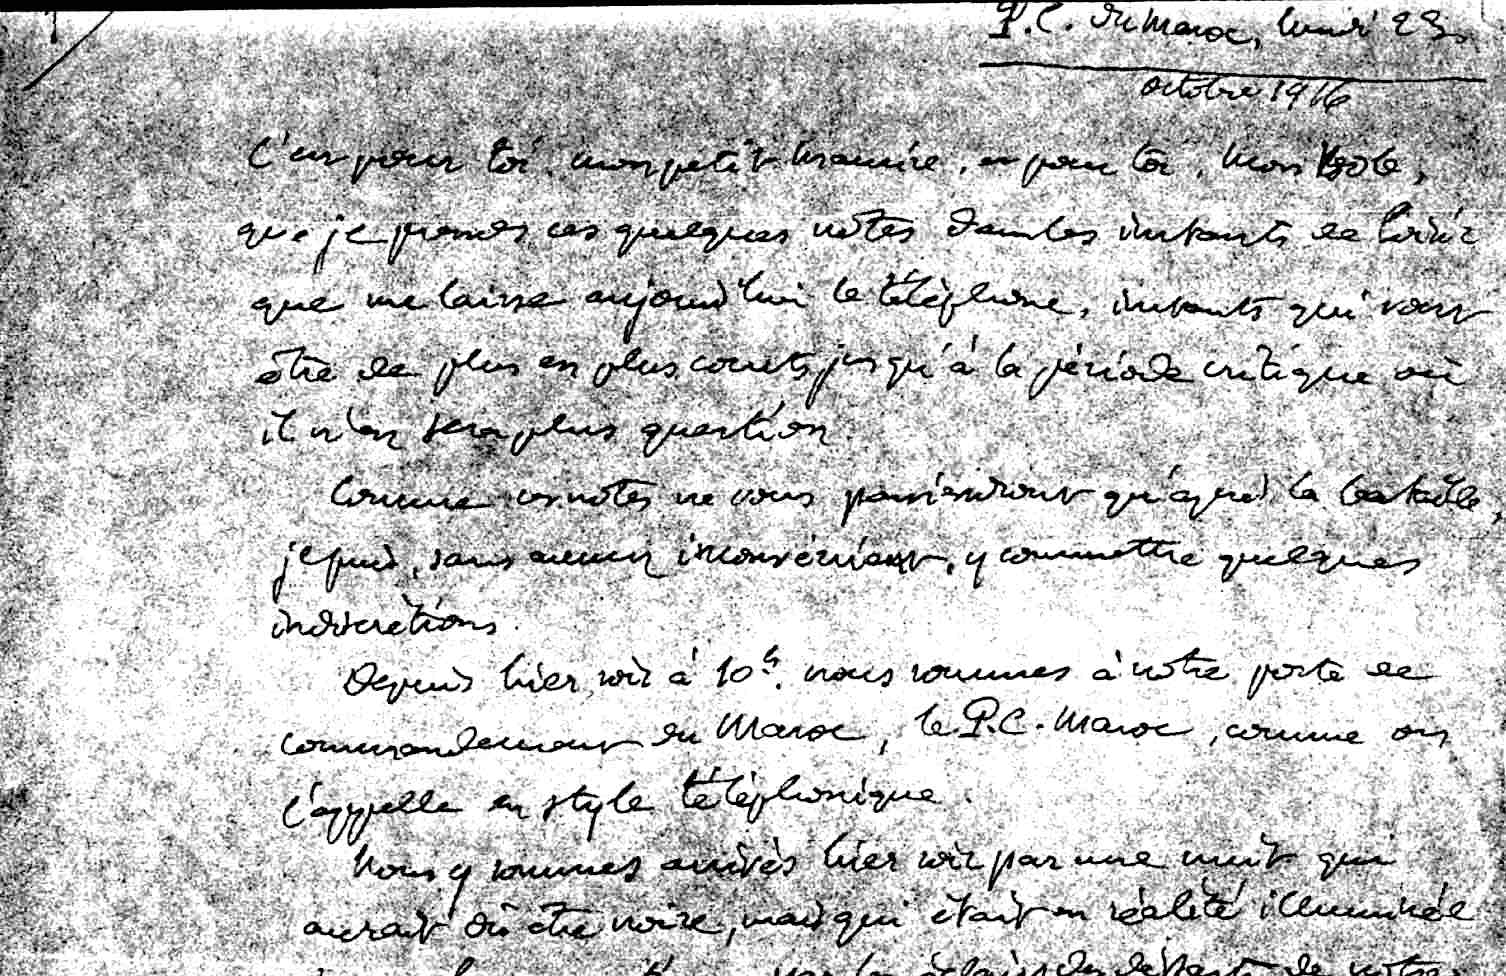 P.C. du Maroc, lundi 23
octobre 1916
C'est pour toi, mon petit, et pour toi, mon
que je prends ces quelques notes dans les instants de loisir
que me laisse aujourd'hui le téléphone, instants qui vont
être de plus en plus courts, jusqu'à la période critique où
il n'en sera plus question.
Comme ces notes ne vous parviendront qu'après la bataille,
je puis, sans aucun inconvénient, y commettre quelques
indiscrétions.
Depuis hier soir à 10h. nous sommes à notre poste de
commandement du Maroc, le P.C. Maroc, comme on
l'appelle en style téléphonique.
Nous y sommes arrivés hier soir par une nuit qui
aurait dû être noire, mais qui était en réalité illuminée
par les éclairs des départs de notre